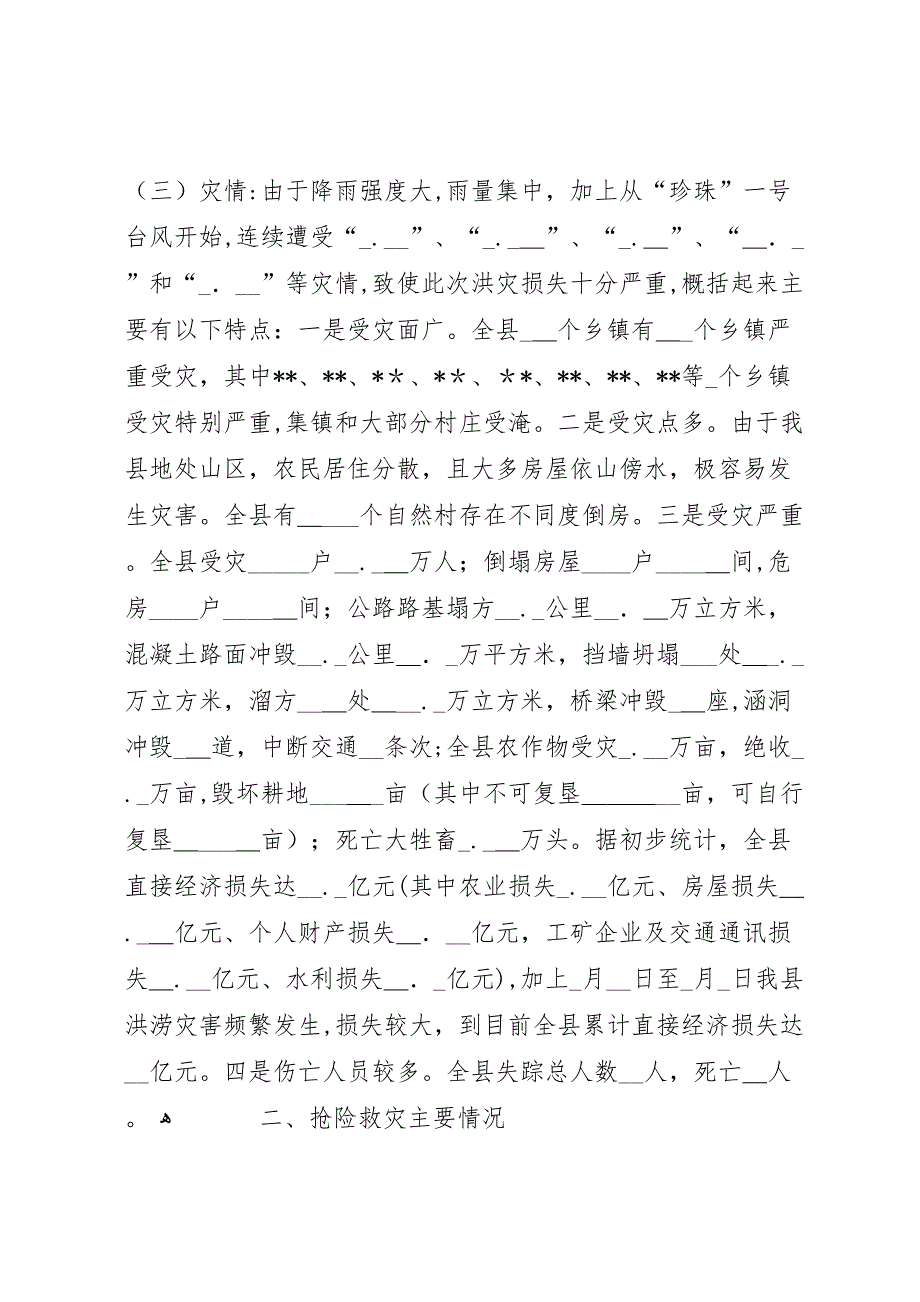 （三）灾情:由于降雨强度大,雨量集中，加上从“珍珠”一号
台风开始,连续遭受“_.__”、“_.___”、“_.__”、“__．_
”和“_．__”等灾情,致使此次洪灾损失十分严重,概括起来主
要有以下特点：一是受灾面广。全县___个乡镇有___个乡镇严
重受灾，其中**、**、*＊、*＊、＊*、**、**、**等_个乡镇
受灾特别严重,集镇和大部分村庄受淹。二是受灾点多。由于我
县地处山区，农民居住分散，且大多房屋依山傍水，极容易发
生灾害。全县有_____个自然村存在不同度倒房。三是受灾严重
。全县受灾_____户__.___万人；倒塌房屋____户______间,危
房____户______间；公路路基塌方__._公里__．__万立方米，
混凝土路面冲毁__._公里__．_万平方米，挡墙坍塌___处___._
万立方米，溜方____处____._万立方米，桥梁冲毁___座,涵洞
冲毁___道，中断交通__条次;全县农作物受灾_.__万亩，绝收_
._万亩,毁坏耕地______亩（其中不可复垦________亩，可自行
复垦_______亩）；死亡大牲畜_.___万头。据初步统计，全县
直接经济损失达__._亿元(其中农业损失_.__亿元、房屋损失__
.___亿元、个人财产损失__．__亿元，工矿企业及交通通讯损
失__.__亿元、水利损失__．_亿元),加上_月__日至_月_日我县
洪涝灾害频繁发生,损失较大，到目前全县累计直接经济损失达
__亿元。四是伤亡人员较多。全县失踪总人数__人，死亡__人
。ﻫ 二、抢险救灾主要情况